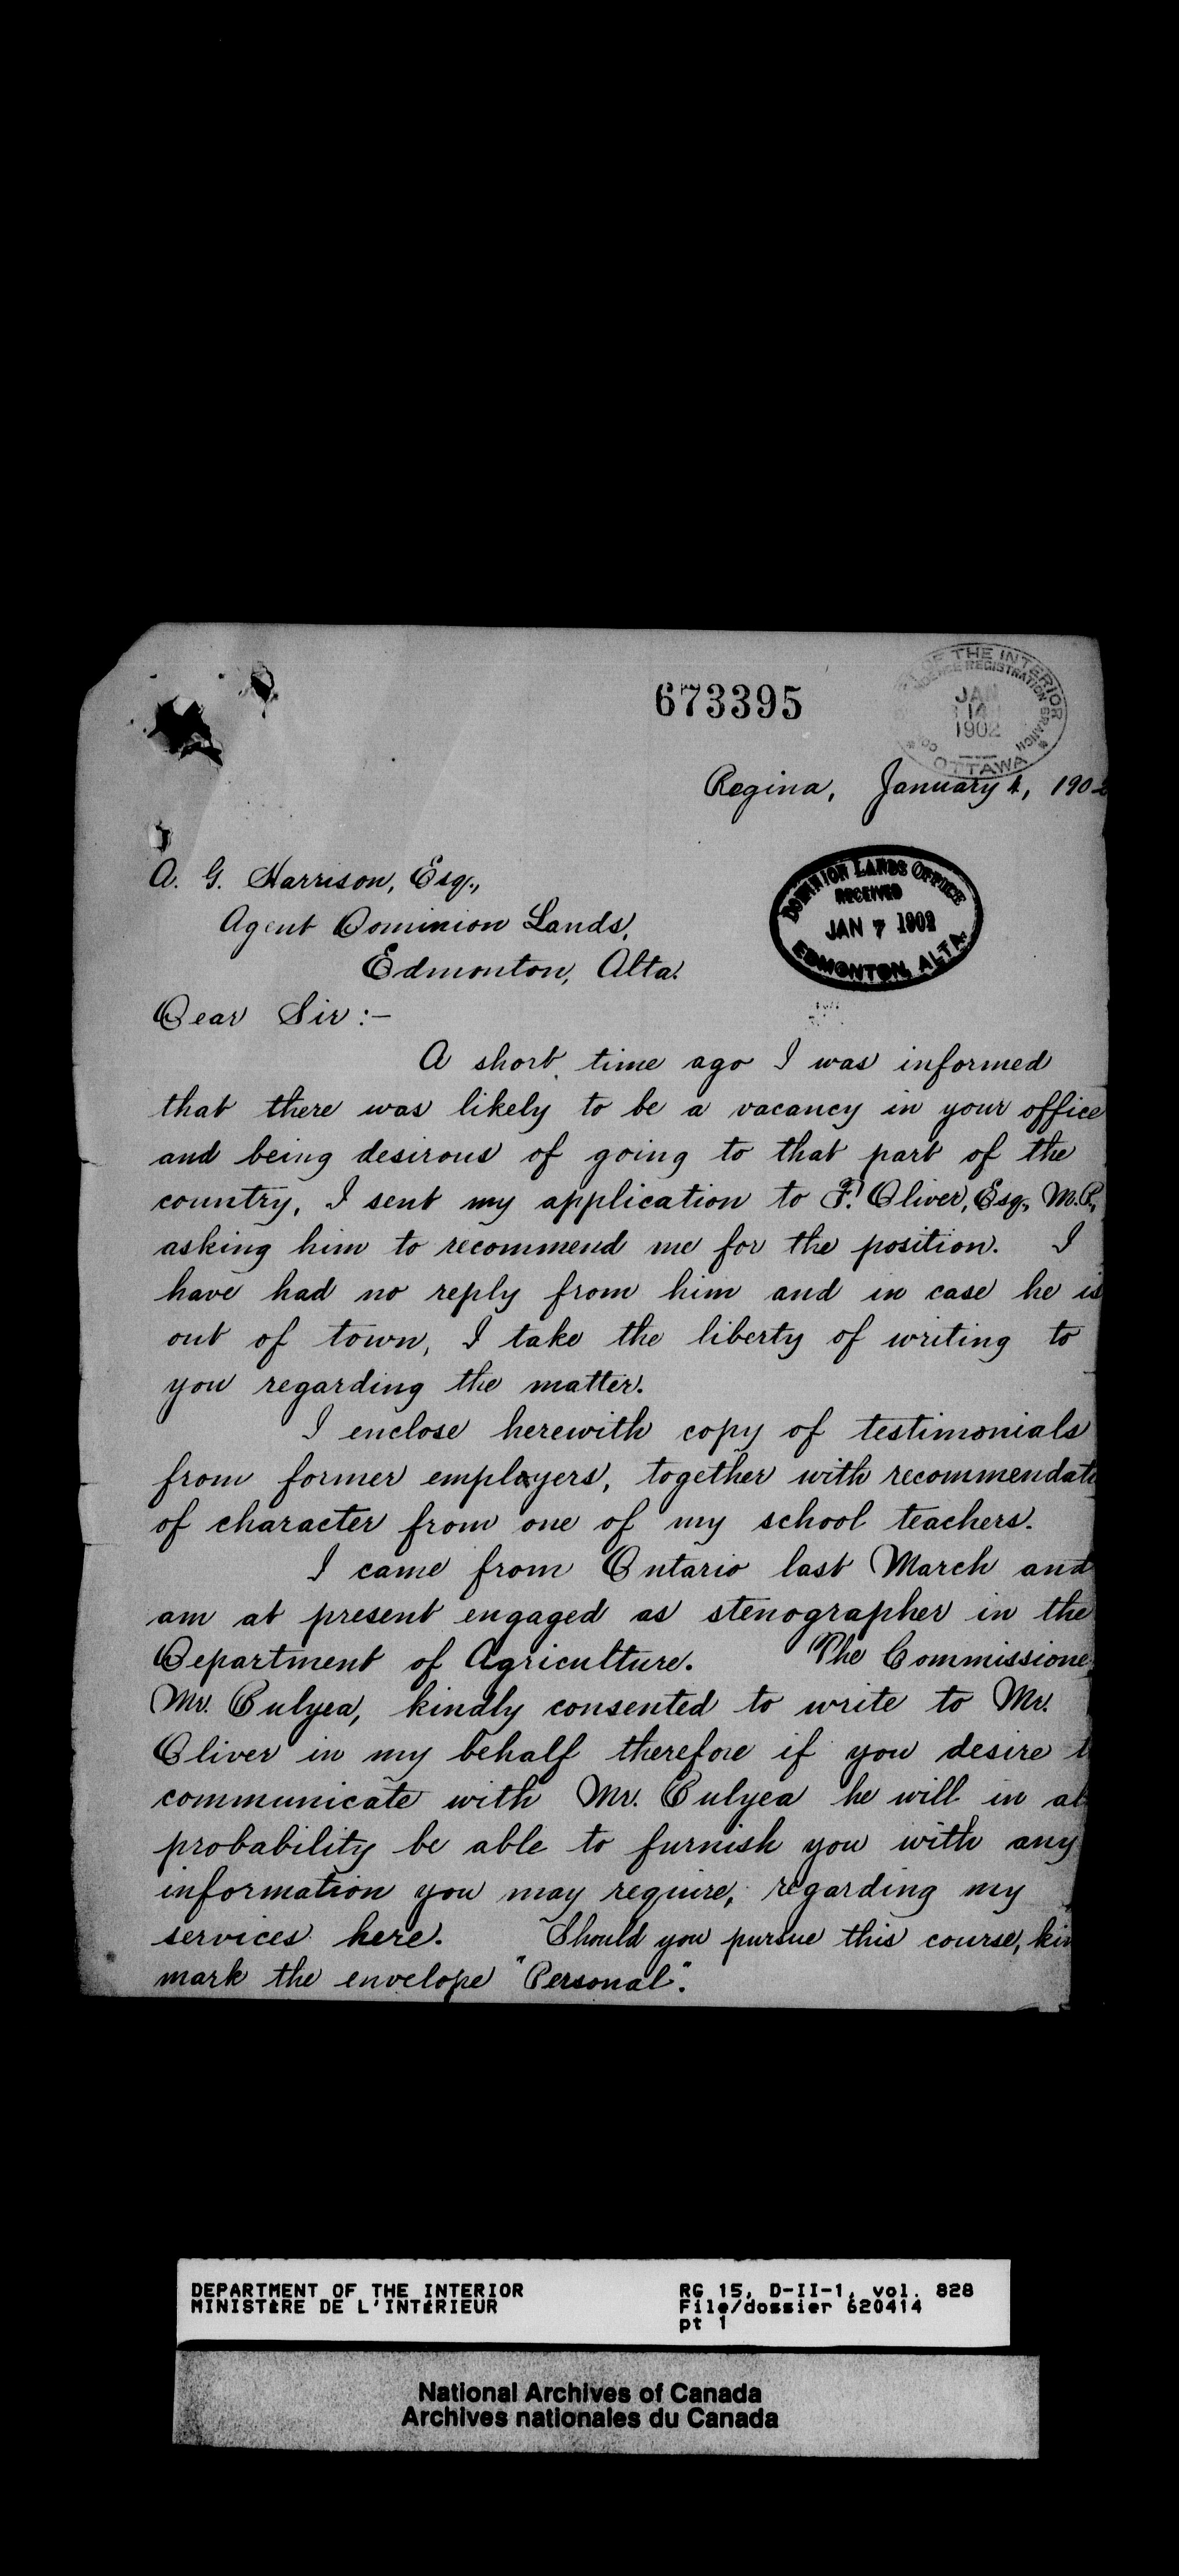 673395
THE INTERIOR
REGISTRATION BRANCH
JAN
14
1902
OTTAWA
Regina, January 4, 190
A. G. Harrison, Esq.,
DOMINION LANDS OFFICE
RECEIVED
JAN 7 1902
EDMONTON, ALTA.
Agent Dominion Lands,
Edmonton, Alta.
Dear Sir :-
A short time ago I was informed
that there was likely to be a vacancy in your office
and being desirous of going to that part of the
country, I sent my application to F. Oliver, Esq., M.P.,
asking him to recommend me for the position. I
have had no reply from him and in case he is
out of town, I take the liberty of writing to
you regarding the matter.
I enclose herewith copy of testimonials
from former employers, together with recommendat
of character from one of my school teachers.
I came from Ontario last March and
am at present engaged as stenographer in the
Department of Agriculture. The Commissione
Mr. Bulyea, kindly consented to write to Mr.
Oliver in my behalf therefore if you desire t
communicate with Mr. Bulyea he will in al
probability be able to furnish you with any
information you may require, regarding my
services here. Should you pursue this course, kin
mark the envelope "Personal".
DEPARTMENT OF THE INTERIOR
MINISTÈRE DE L'INTÉRIEUR
RG 15, D-II-1, vol. 828
File/dossier 620414
pt 1
National Archives of Canada
Archives nationales du Canada